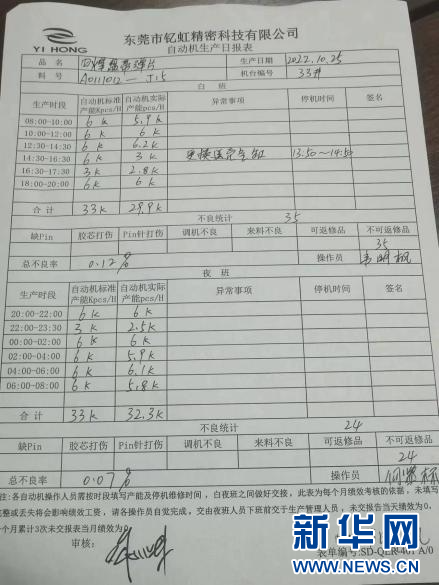 YI HONG
东莞市钇虹精密科技有限公司
自动机生产日报表
品名 生产日期 2022.10.25
料号 A0111012-J15 机台编号 33#
白 班
生产时段 自动机标准产能Kpcs/H 自动机实际产能pcs/H 异常事项 停机时间 签名
08:00-10:00 6K 5.9K
10:00-12:00 6K 6K
12:30-14:30 6K 6.2K
14:30-16:30 6K 3K 13:50~14:50
16:30-17:30 3K 2.8K
18:00-20:00 6K 6K
合 计 33K 29.9K
不良统计 35
缺Pin 胶芯打伤 Pin针打伤 调机不良 来料不良 可返修品 不可返修品
35
总不良率 0.12% 操作员
夜 班
生产时段 自动机标准产能Kpcs/H 自动机实际产能pcs/H 异常事项 停机时间 签名
20:00-22:00 6K 6K
22:00-23:30 3K 2.5K
00:00-02:00 6K 6K
02:00-04:00 6K 5.9K
04:00-06:00 6K 6.1K
06:00-08:00 6K 5.8K
合 计 33K 32.3K
不良统计 24
缺Pin 胶芯打伤 Pin针打伤 调机不良 来料不良 可返修品 不可返修品
24
总不良率 0.07% 操作员
注:各自动机操作人员需按时段填写产能及停机维修时间，白夜班之间做好交接，此表为每个月绩效考核的依据，未填写
完整或丢失将会影响绩效工资，请各操作员自觉完成，交由夜班人员下班前交于生产管理人员，未交报告当天绩效为0，
一个月累计3次未交报表当月绩效为0
审核:
新华网
表单编号:SD-QER-401 A/0